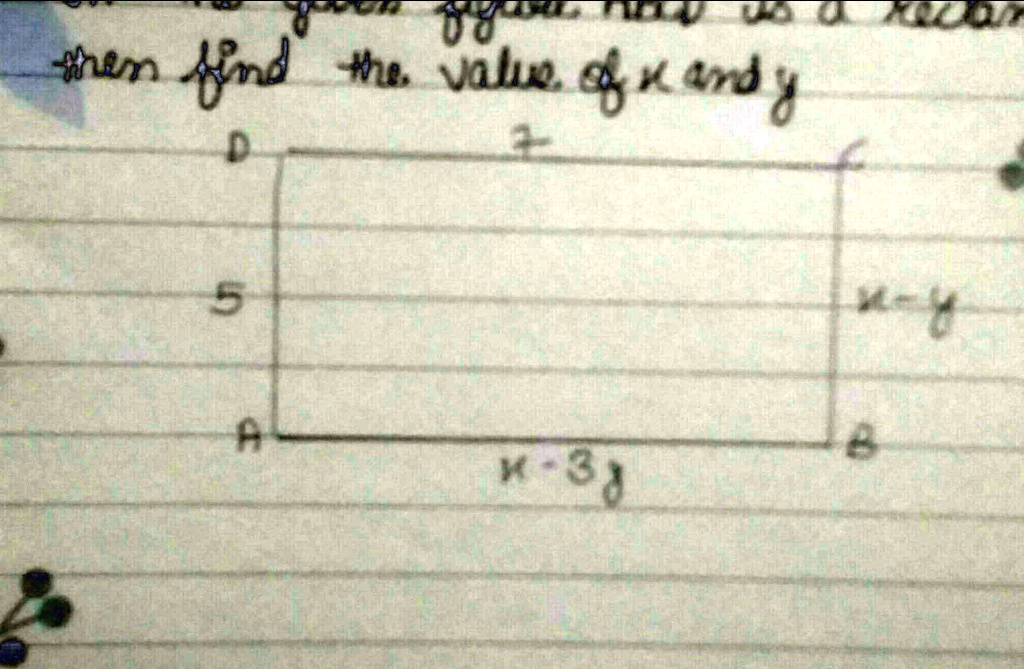 given figure is a
then find the value of x and y
D 7 C
5 x-y
A B
x-3y